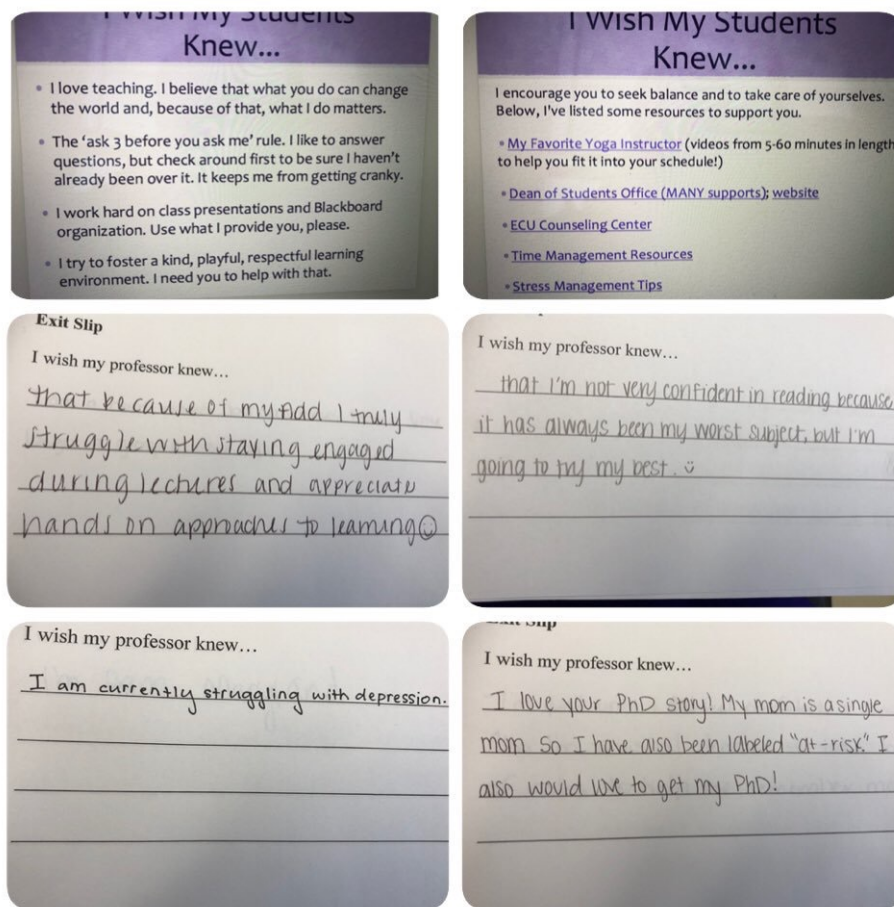 I Wish My Students
Knew...
• I love teaching. I believe that what you do can change
the world and, because of that, what I do matters.
• The ‘ask 3 before you ask me’ rule. I like to answer
questions, but check around first to be sure I haven’t
already been over it. It keeps me from getting cranky.
• I work hard on class presentations and Blackboard
organization. Use what I provide you, please.
• I try to foster a kind, playful, respectful learning
environment. I need you to help with that.
I Wish My Students
Knew...
I encourage you to seek balance and to take care of yourselves.
Below, I've listed some resources to support you.
• My Favorite Yoga Instructor (videos from 5-60 minutes in length
to help you fit it into your schedule!)
• Dean of Students Office (MANY supports); website
• ECU Counseling Center
• Time Management Resources
• Stress Management Tips
Exit Slip
I wish my professor knew...
that because of my Add I truly
struggle with staying engaged
during lectures and appreciate
hands on approaches to learning☺
I wish my professor knew...
that I'm not very confident in reading because
it has always been my worst subject, but I'm
going to try my best. ☺
I wish my professor knew...
I am currently struggling with depression.
Exit Slip
I wish my professor knew...
I love your PhD story! My mom is a single
mom so I have also been labeled "at-risk." I
also would love to get my PhD!